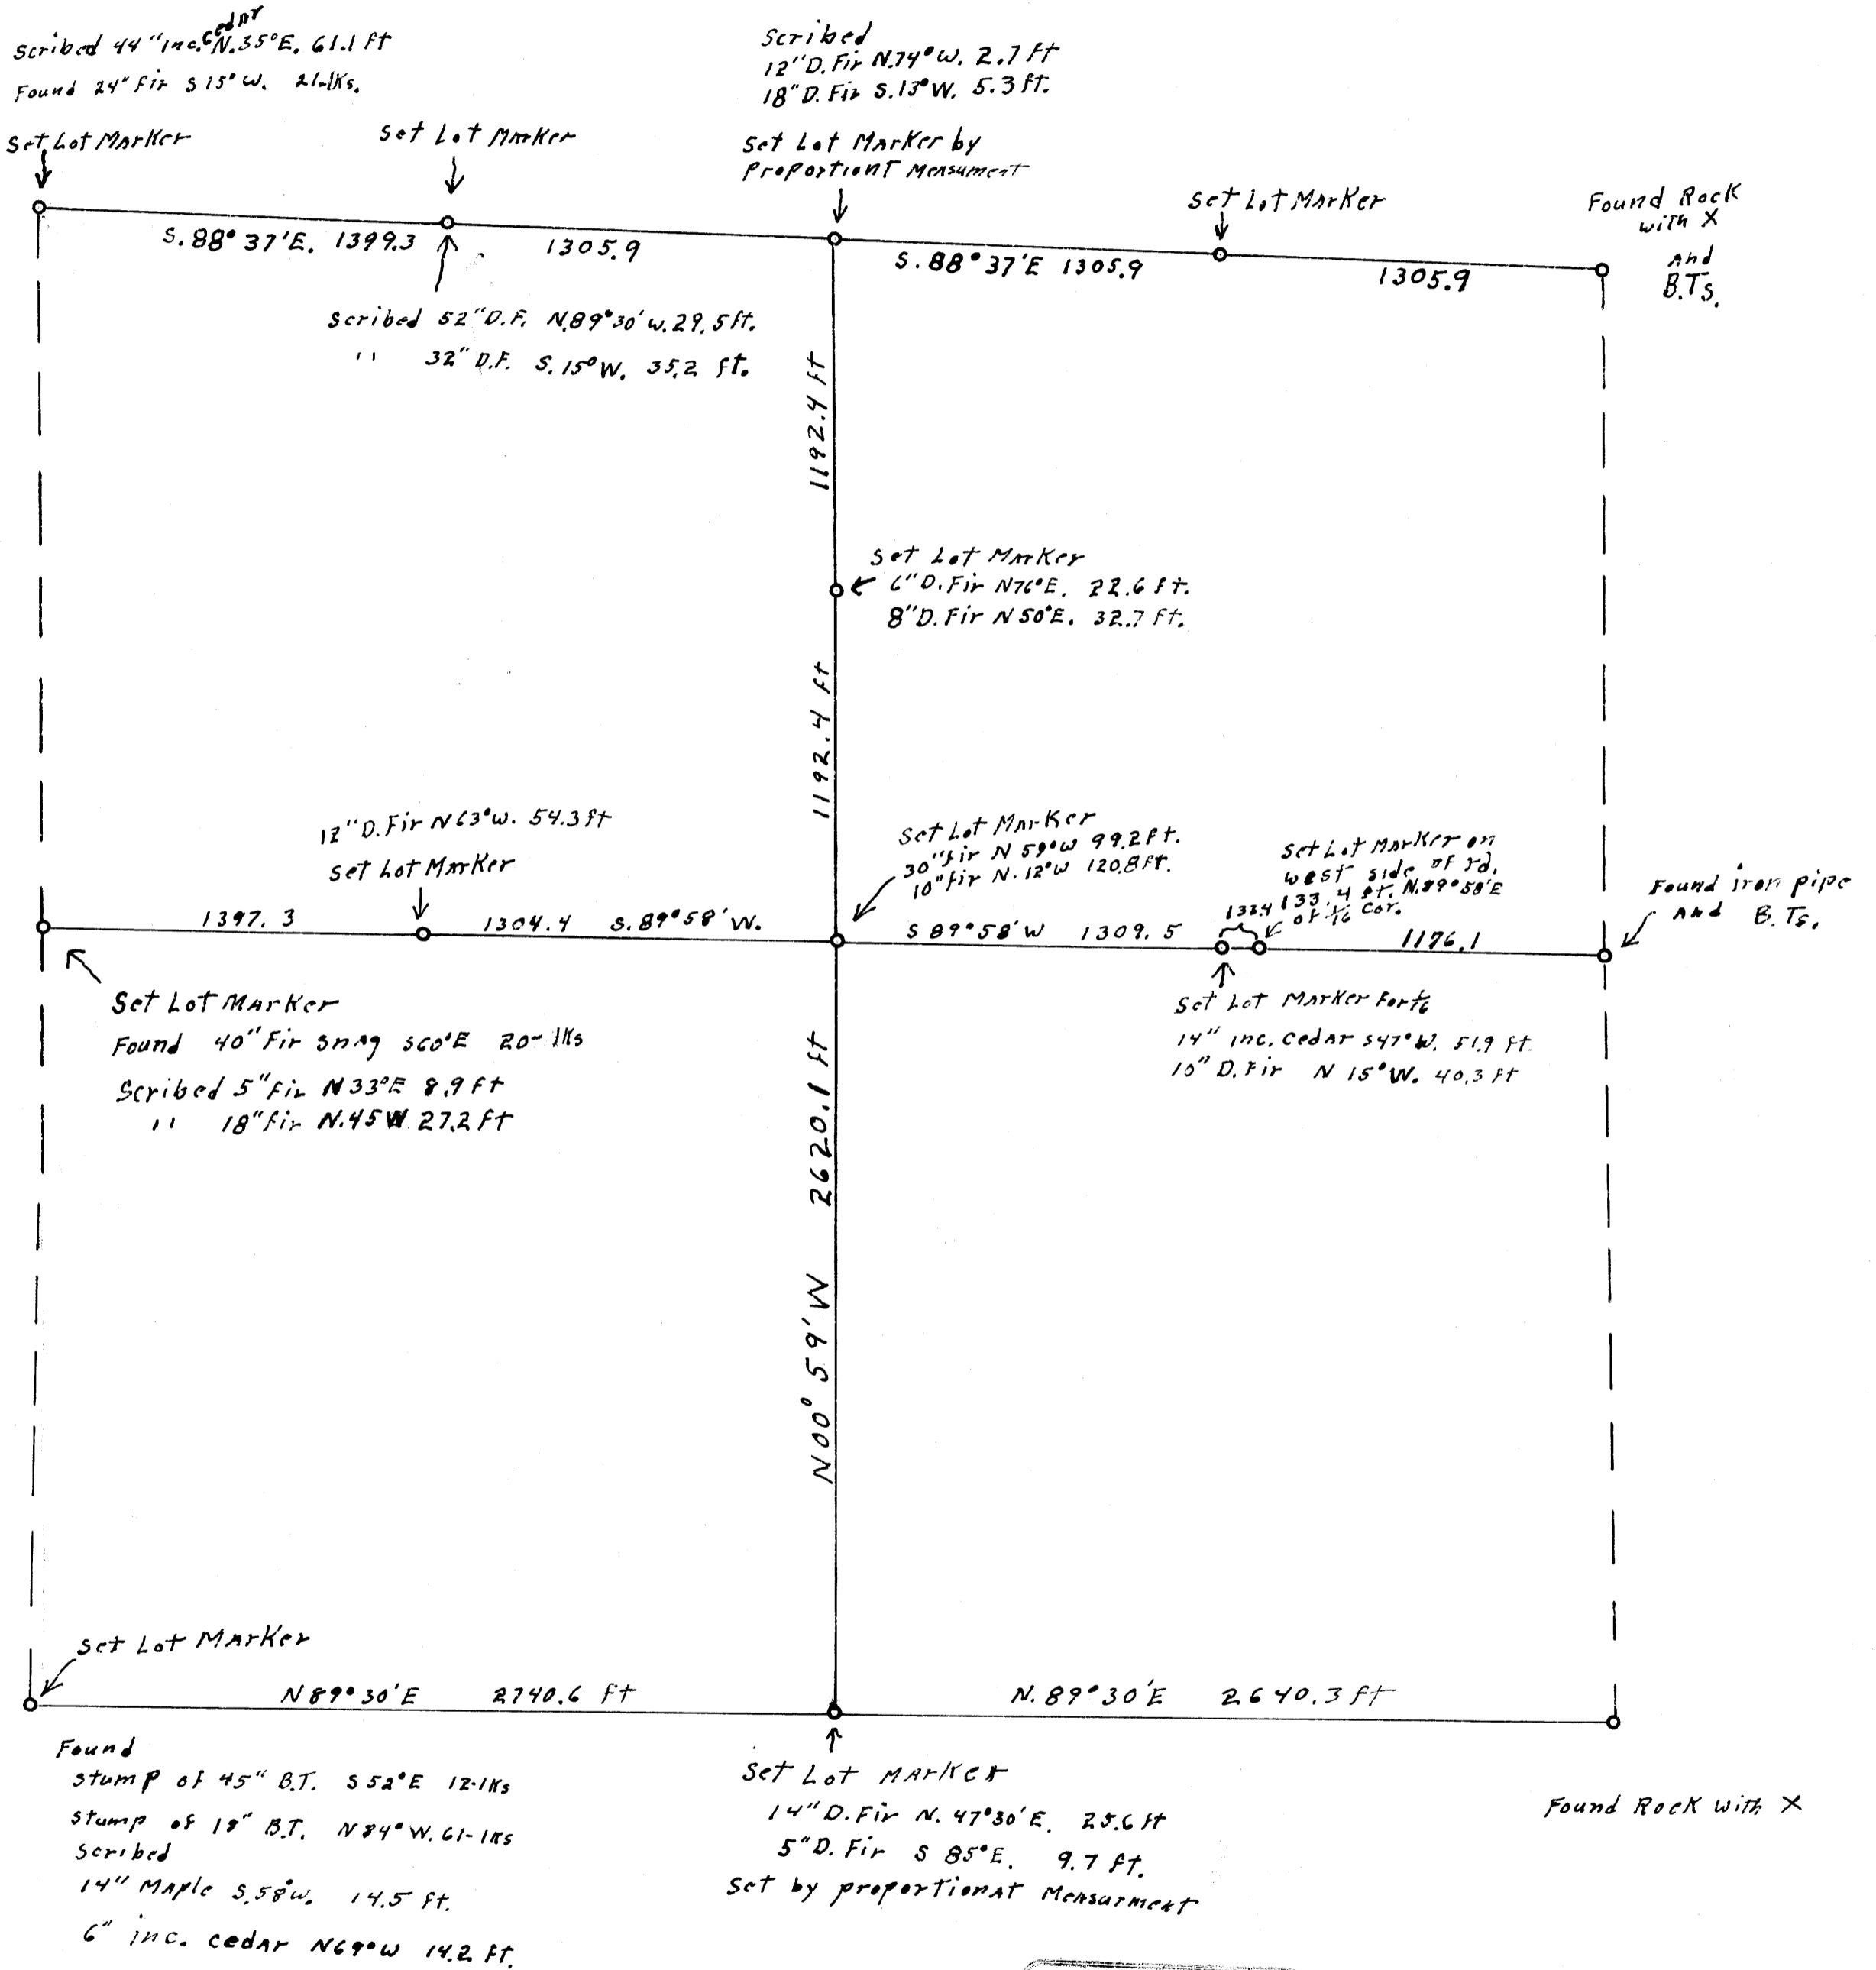 Scribed 44" inc. Cedar N.35°E. 61.1 ft
Found 24" fir S 15° W. 21-lks.
Set Lot Marker
Set Lot Marker
Scribed
12" D. Fir N.74° W. 2.7 ft
18" D. Fir S.13° W. 5.3 ft.
Set Lot Marker by
Proportiont Mensument
Set Lot Marker
Found Rock
with X
And
B.Ts.
S. 88° 37' E. 1399.3
1305.9
S. 88° 37' E 1305.9
1305.9
Scribed 52" D.F. N.89°30' W. 29.5 ft.
" 32" D.F. S. 15° W. 35.2 ft.
1192.4 ft
Set Lot Marker
6" D. Fir N76°E. 22.6 ft.
8" D. Fir N 50°E. 32.7 ft.
1192.4 ft
12" D. Fir N 63° W. 54.3 ft
Set Lot Marker
Set Lot Marker
30" fir N 59° W 99.2 ft.
10" fir N. 12° W 120.8 ft.
Set Lot Marker on
west side of rd,
133.4 ft. N.89°58'E
of 1/16 Cor.
Found iron pipe
And B.Ts.
1397.3
1304.4 S. 89°58' W.
S 89°58' W 1309.5
133.4
1176.1
Set Lot Marker
Found 40" Fir Snag S60°E 20-lks
Scribed 5" fir N 33°E 8.9 ft
" 18" fir N.45 W 27.2 ft
Set Lot Marker For 1/16
14" inc. Cedar S47° W. 51.9 ft.
10" D. Fir N 15° W. 40.3 ft
N00° 59' W 2620.1 ft
Set Lot Marker
N 89° 30' E 2740.6 ft
N. 89° 30' E 2640.3 ft
Found
Stump of 45" B.T. S 52°E 12-lks
Stump of 18" B.T. N 84° W. 61-lks
Scribed
14" Maple S.58° W. 14.5 ft.
6" inc. cedar N69° W 14.2 ft.
Set Lot Marker
14" D. Fir N. 47°30' E. 25.6 ft
5" D. Fir S 85°E. 9.7 ft.
Set by proportionat Mensurment
Found Rock with X